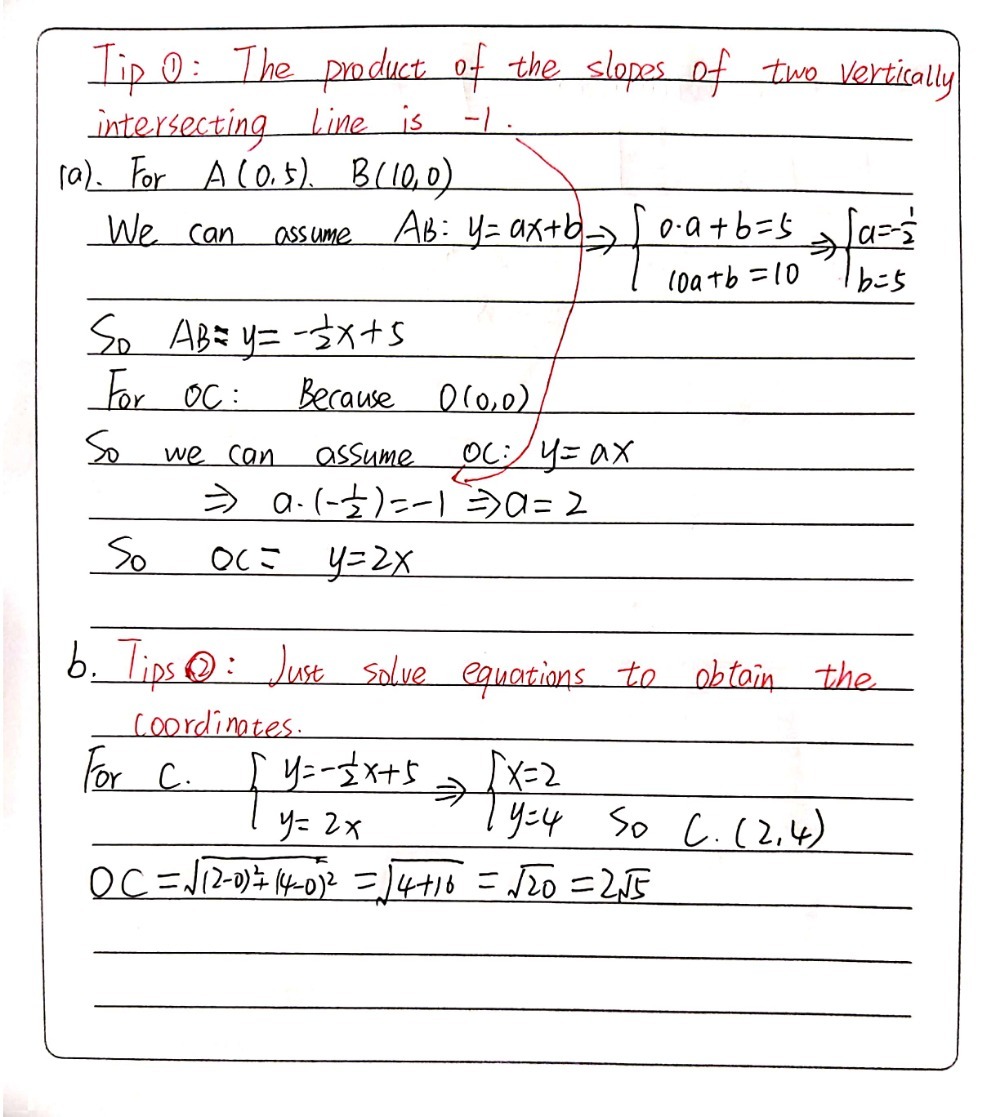 Tip ①: The product of the slopes of two vertically
intersecting line is -1.
(a). For A(0,5). B(10,0)
We can assume AB: y=ax+b ⇒ { 0·a+b=5 ⇒ { a=-1/2
10a+b=10 b=5
So AB: y= -1/2x+5
For OC: Because O(0,0)
So we can assume OC: y=ax
⇒ a·(-1/2)=-1 ⇒ a=2
So OC= y=2x
b. Tips ②: Just solve equations to obtain the
coordinates.
For C. { y=-1/2x+5 ⇒ { x=2
y=2x y=4 So C.(2,4)
OC=√((2-0)²+(4-0)²) =√(4+16) =√20 =2√5